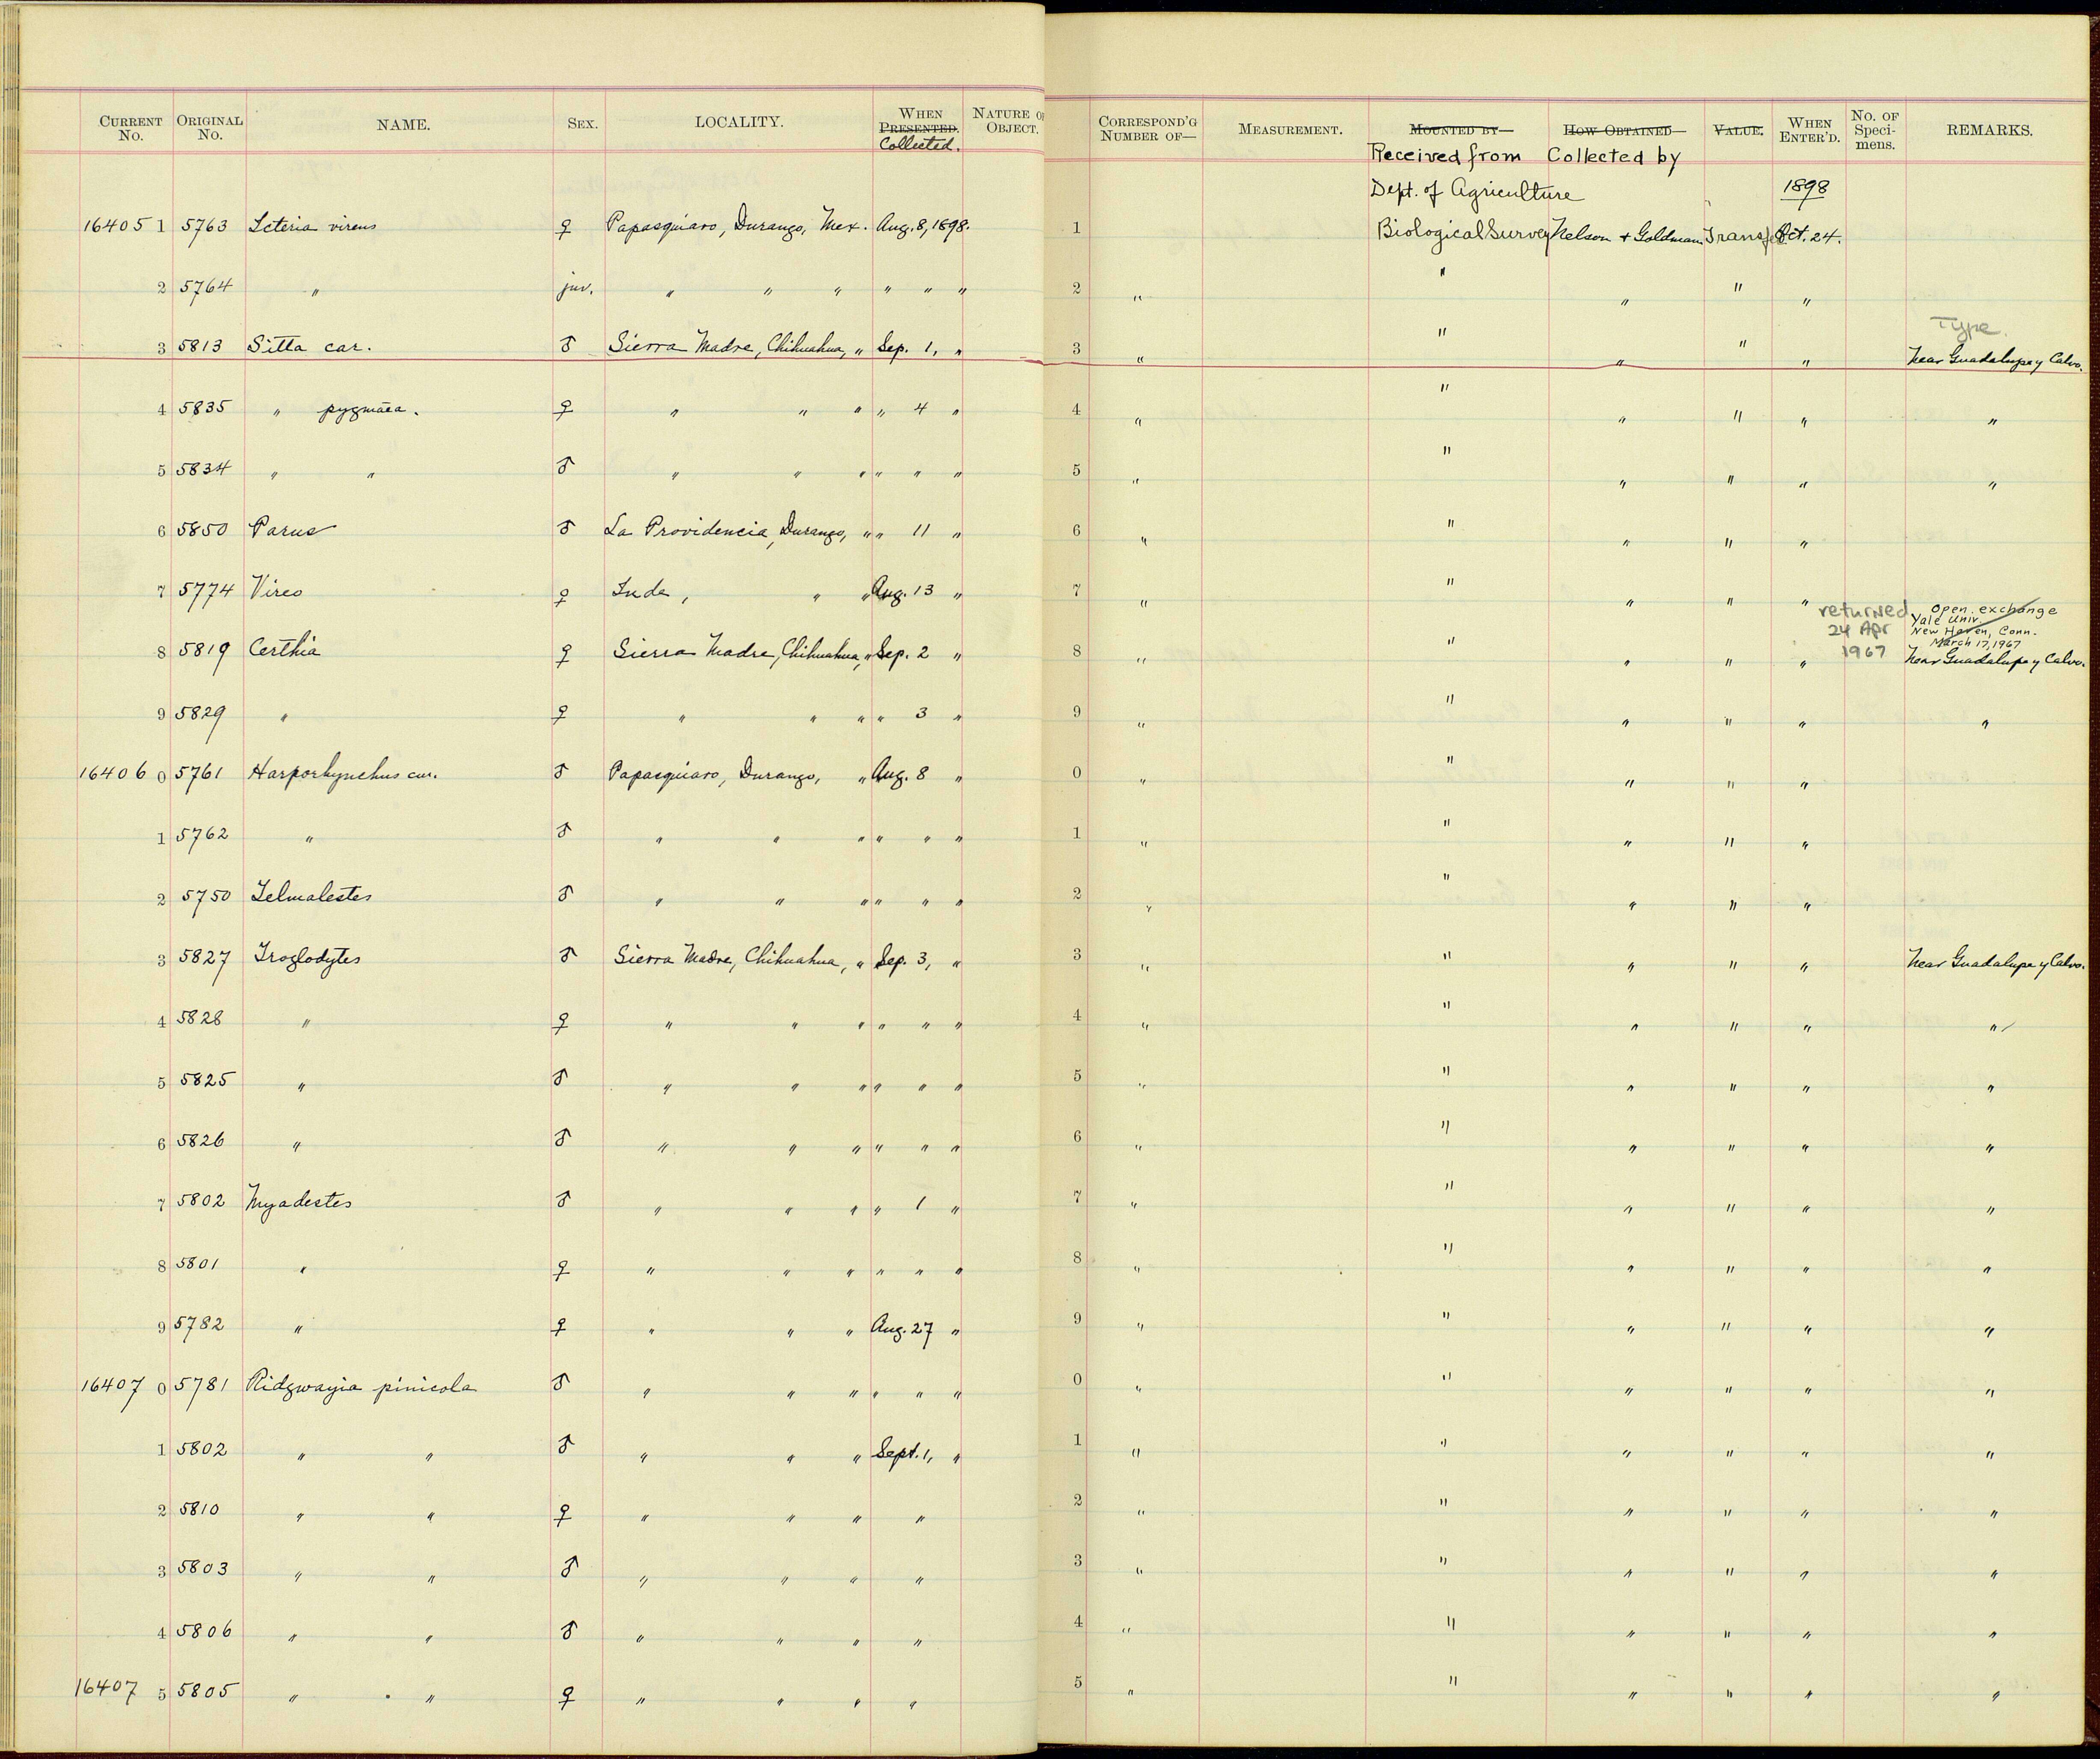 CURRENT No. ORIGINAL No. NAME. SEX. LOCALITY. WHEN PRESENTED. Collected. NATURE OF OBJECT.
164051 5763 Icteria virens ♀ Papasquiaro, Durango, Mex. Aug. 8, 1898.
2 5764 " juv. " " " " " "
3 5813 Sitta car. ♂ Sierra Madre, Chihuahua, " Sep. 1, "
4 5835 " pygmaea. ♀ " " " " 4 "
5 5834 " " ♂ " " " " " "
6 5850 Parus ♂ La Providencia, Durango, " " 11 "
7 5774 Vireo ♀ Inde, " " Aug. 13 "
8 5819 Certhia ♀ Sierra Madre, Chihuahua, " Sep. 2 "
9 5829 " ♀ " " " " 3 "
164060 5761 Harporhynchus cur. ♂ Papasquiaro, Durango, " Aug. 8 "
1 5762 " ♂ " " " " " "
2 5750 Telmalestes ♂ " " " " " "
3 5827 Troglodytes ♂ Sierra Madre, Chihuahua, " Sep. 3, "
4 5828 " ♀ " " " " " "
5 5825 " ♂ " " " " " "
6 5826 " ♂ " " " " " "
7 5802 Myadestes ♂ " " " " 1 "
8 5801 " ♀ " " " " " "
9 5782 " ♀ " " " Aug. 27 "
164070 5781 Ridgwayia pinicola ♂ " " " " " "
1 5802 " " ♂ " " " Sept. 1, "
2 5810 " " ♀ " " " "
3 5803 " " ♂ " " " "
4 5806 " " ♂ " " " "
164075 5805 " " ♀ " " " "
CORRESPOND'G NUMBER OF— MEASUREMENT. MOUNTED BY— HOW OBTAINED— VALUE. WHEN ENTER'D. No. OF Speci-mens. REMARKS.
Received from Collected by
Dept. of Agriculture 1898
1 Biological Survey Nelson + Goldman Transfer Oct. 24.
2 " " " " "
Type
3 " " " " " Near Guadalupe y Calvo.
4 " " " " " "
5 " " " " " "
6 " " " " "
7 " " " " "
returned 24 Apr 1967
Open exchange
Yale Univ.
New Haven, Conn.
March 17, 1967
8 " " " " " Near Guadalupe y Calvo.
9 " " " " " "
0 " " " " "
1 " " " " "
2 " " " " "
3 " " " " " Near Guadalupe y Calvo.
4 " " " " " "
5 " " " " " "
6 " " " " " "
7 " " " " " "
8 " " " " " "
9 " " " " " "
0 " " " " " "
1 " " " " " "
2 " " " " " "
3 " " " " " "
4 " " " " " "
5 " " " " " "